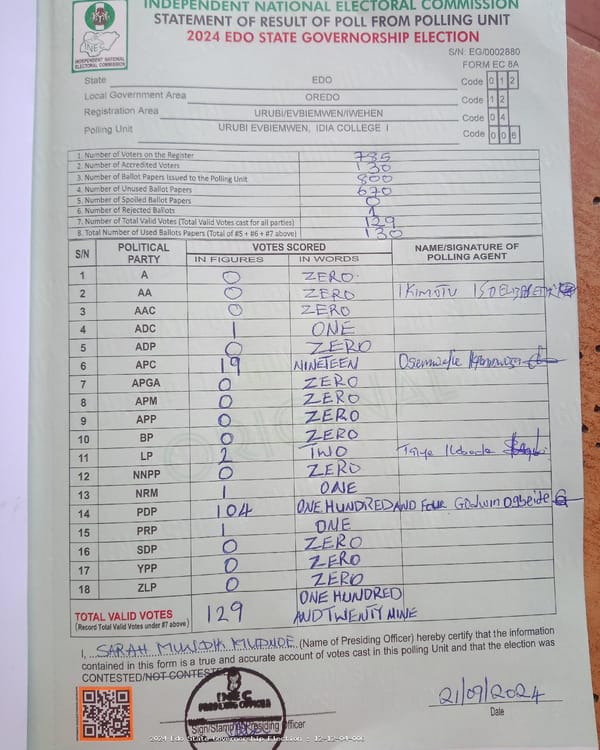 INDEPENDENT NATIONAL ELECTORAL COMMISSION
STATEMENT OF RESULT OF POLL FROM POLLING UNIT
2024 EDO STATE GOVERNORSHIP ELECTION
INEC
INDEPENDENT NATIONAL
ELECTORAL COMMISSION
S/N: EG/0002880
FORM EC 8A
State EDO Code 0 1 2
Local Government Area OREDO Code 1 2
Registration Area URUBI/EVBIEMWEN/IWEHEN Code 0 4
Polling Unit URUBI EVBIEMWEN, IDIA COLLEGE I Code 0 0 6
1. Number of Voters on the Register 785
2. Number of Accredited Voters 130
3. Number of Ballot Papers Issued to the Polling Unit 800
4. Number of Unused Ballot Papers 670
5. Number of Spoiled Ballot Papers 0
6. Number of Rejected Ballots 1
7. Number of Total Valid Votes (Total Valid Votes cast for all parties) 129
8. Total Number of Used Ballots Papers (Total of #5 + #6 + #7 above) 130
S/N POLITICAL PARTY VOTES SCORED NAME/SIGNATURE OF POLLING AGENT
IN FIGURES IN WORDS
1 A 0 ZERO
2 AA 0 ZERO
3 AAC 0 ZERO
4 ADC 1 ONE
5 ADP 0 ZERO
6 APC 19 NINETEEN
7 APGA 0 ZERO
8 APM 0 ZERO
9 APP 0 ZERO
10 BP 0 ZERO
11 LP 2 TWO
12 NNPP 0 ZERO
13 NRM 1 ONE
14 PDP 104 ONE HUNDRED AND FOUR Godwin Ogbeide
15 PRP 1 ONE
16 SDP 0 ZERO
17 YPP 0 ZERO
18 ZLP 0 ZERO
TOTAL VALID VOTES 129 ONE HUNDRED
(Record Total Valid Votes under #7 above) AND TWENTY NINE
I, SARAH (Name of Presiding Officer) hereby certify that the information
contained in this form is a true and accurate account of votes cast in this polling Unit and that the election was
CONTESTED/NOT CONTESTED
INEC
PRESIDING OFFICER
Sign/Stamp Presiding Officer
21/09/2024
Date
2024 Edo State Governorship Election : 12-12-04-006